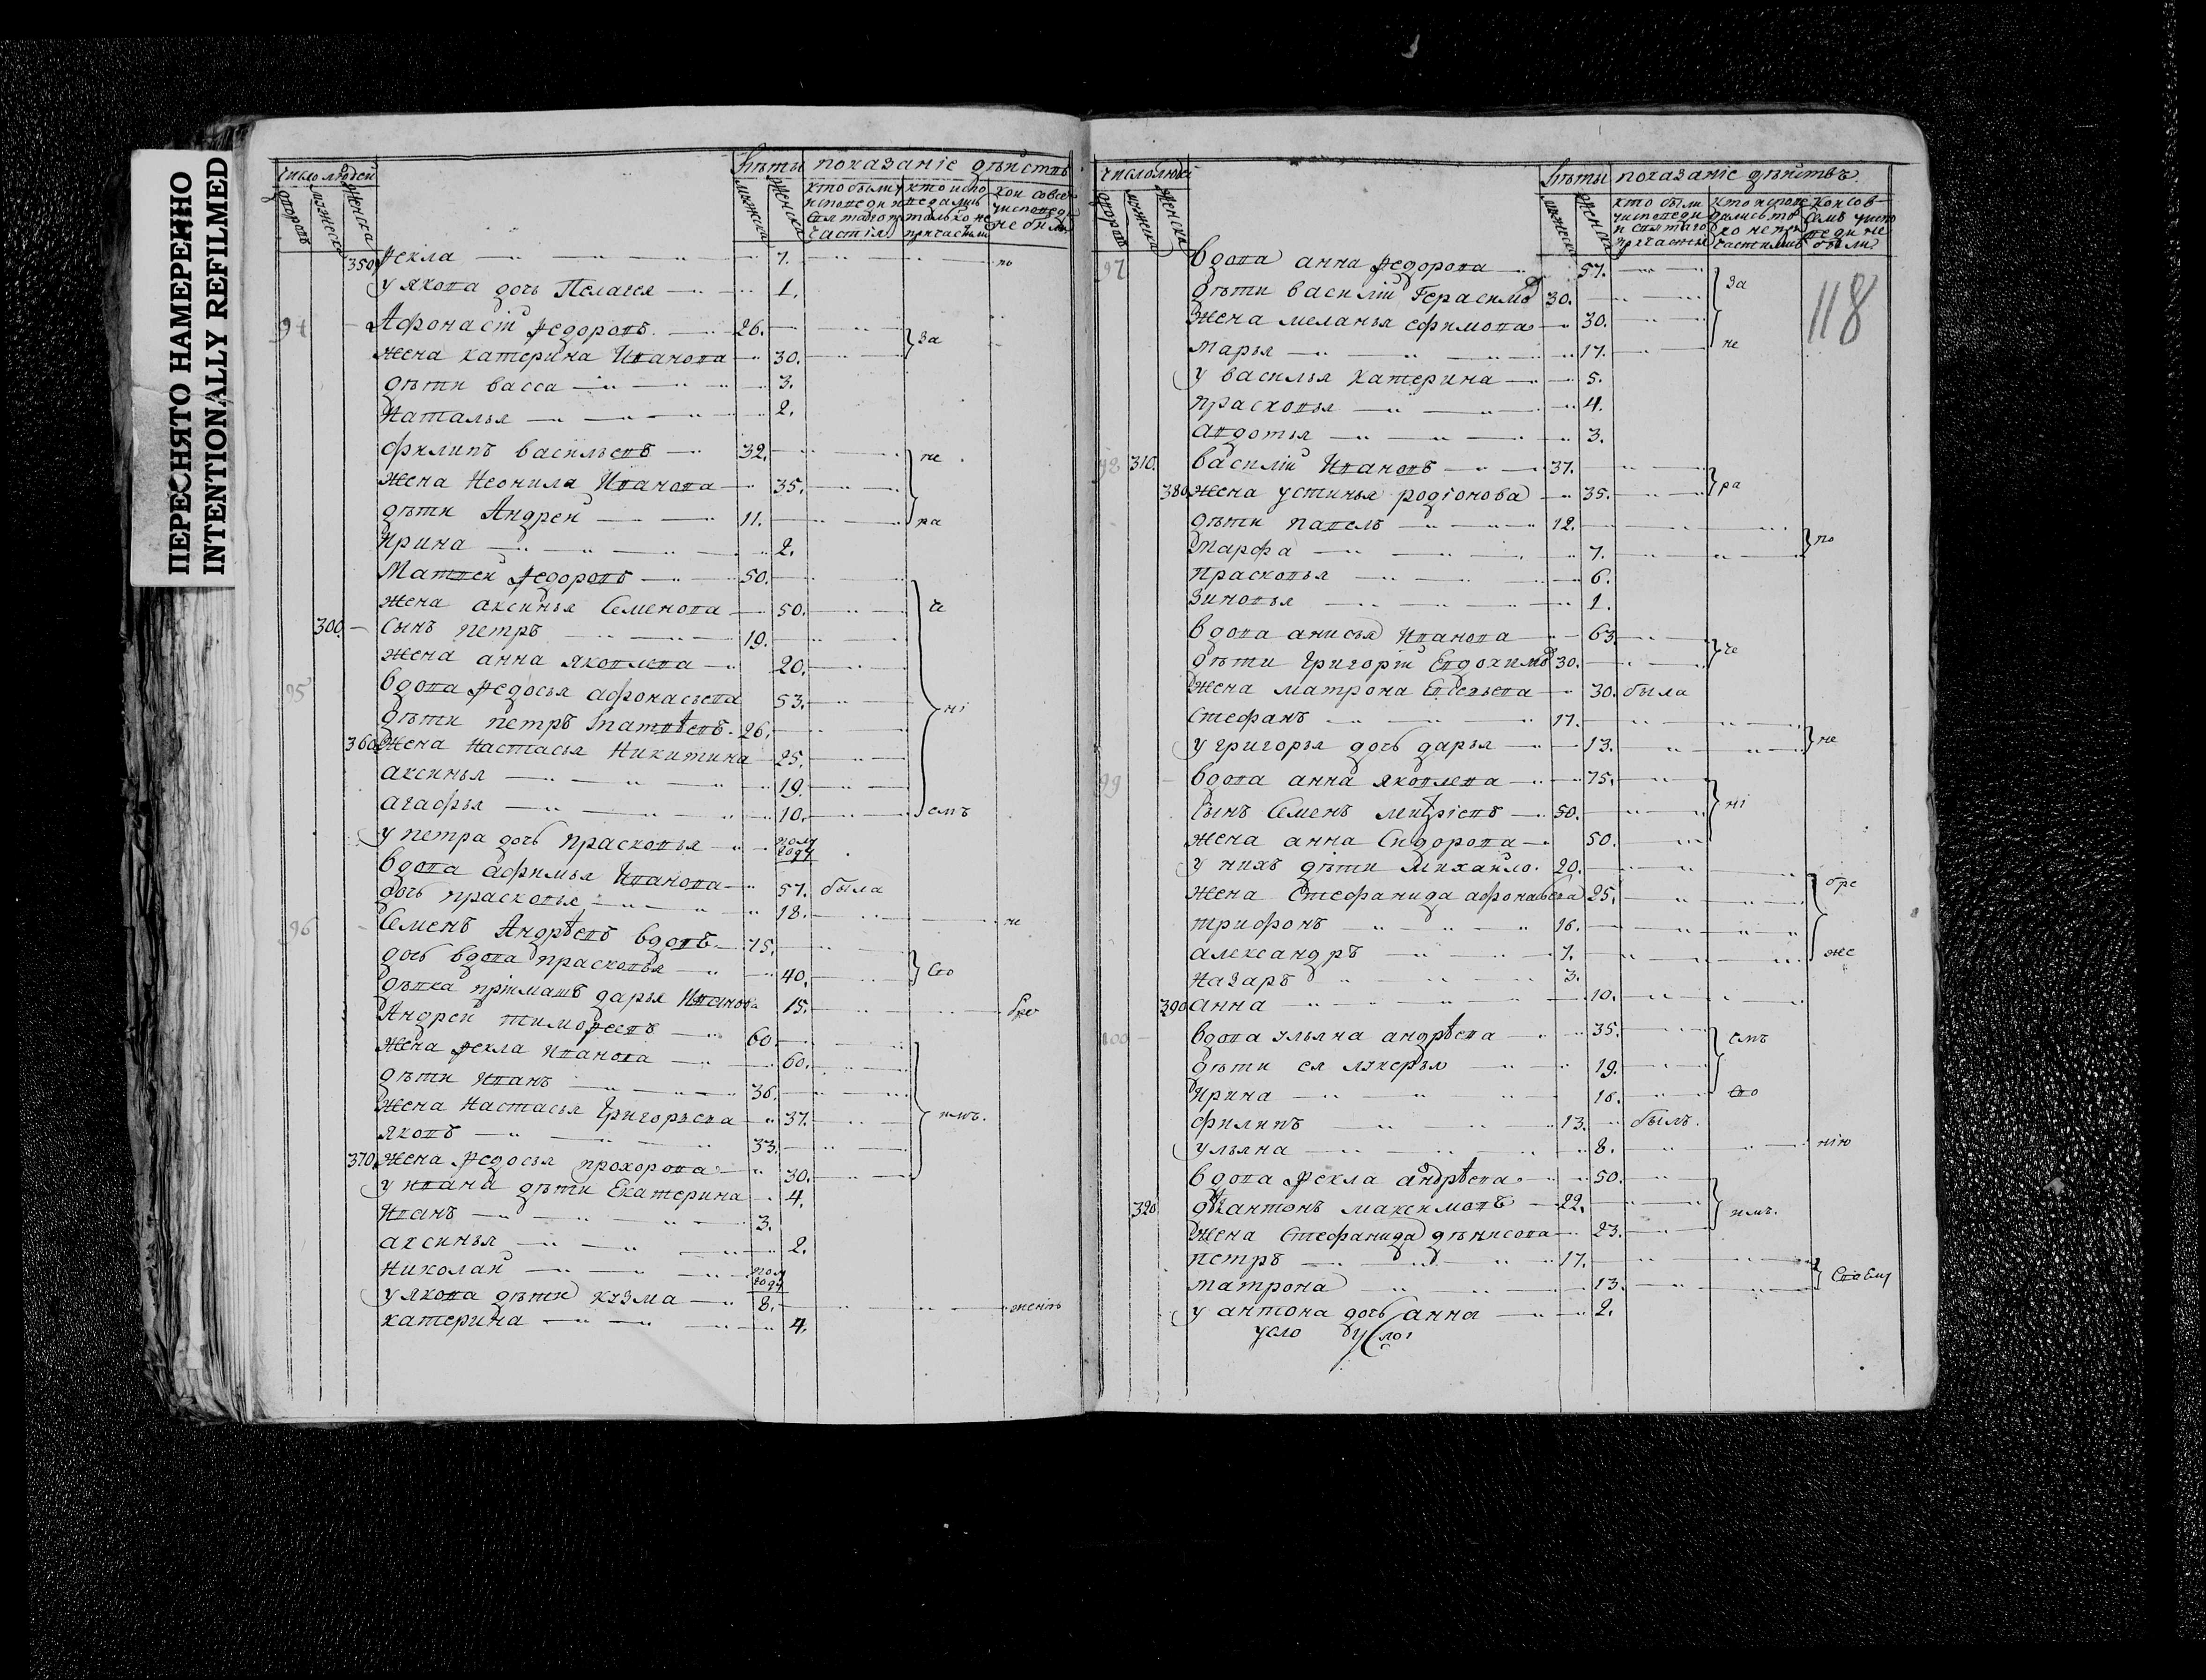 ПЕРЕСНЯТО НАМЕРЕННО
INTENTIONALLY REFILMED
число людей
дворовъ мужеска женска
лѣты показаніе дѣйствъ
мужеска женска
кто были у исповеди и святаго причастія
кто исповедались только не причастились
кои совсемъ у исповеди не были
350 Ѳекла 7. по
у якова дочь Пелагея 1.
94 Афонасій Ѳедоровъ 26. За
жена катерина Иванова 30.
дѣти васса 3.
Наталья 2.
филипъ васильевъ 32. не
жена Неонила Иванова 35.
дѣти Андрей 11. ра
Ирина 2.
Матвей Ѳедоровъ 50.
жена аксинья Семенова 50. че
300 сынъ петръ 19.
жена анна яковлева 20.
95 вдова Ѳедосья афонасьева 53. ні
дѣти петръ Матвѣевъ 26.
360 жена Настасья Никитина 25.
аксинья 19.
агафья 10. емъ
у петра дочь прасковья полу году
вдова афимья Иванова 57. была
дочь прасковья 18. не
96 Семенъ Андрѣевъ вдовъ 75.
дочь вдова прасковья 40. Сво
дѣвка приімашъ дарья Иванова 15. бре
Андрей тимоѳеевъ 60.
жена Ѳекла Иванова 60.
дѣти Иванъ 36.
жена Настасья Григорьева 37. имъ.
яковъ 33.
370 жена Ѳедосья прохорова 30.
у ивана дѣти Екатерина 4.
Иванъ 3.
аксинья 2.
николай полу году
у якова дѣти кузма 8. женію
катерина 4.
число людей
дворовъ мужеска женска
лѣты показаніе дѣйствъ.
мужеска женска
кто были у исповеди и святаго причастія
кто исповедались токо не причастились
кои совсемъ у исповеди не были
118
97 вдова анна Ѳедорова 57. За
дѣти василій Герасимовъ 30.
жена меланья ефимова 30.
марья 17. не
у василья катерина 5.
прасковья 4.
авдотья 3.
98 310 василій Ивановъ 37.
380 жена устинья родіонова 35. ра
дѣти павелъ 12. по
марфа 7.
прасковья 6.
зиновья 1.
вдова анисья Иванова 63 че
дѣти григорій Евдокимовъ 30.
жена матрона Евсевьева 30. была
стефанъ 17. не
у григорья дочь дарья 13.
99 вдова анна яковлева 75. ні
сынъ Семенъ 50.
жена анна Сидорова 50.
у нихъ дѣти михайло 20. бре
жена стефанида афонасьева 25.
трифонъ 16.
александръ 7. же
назаръ 3.
390 анна 10.
100 вдова ульяна андрѣева 35. емъ
дѣти ея лукерья 19.
Ирина 16. Сво
филипъ 13. былъ.
ульяна 8. нію
вдова Ѳекла андрѣева 50.
320 антонъ максимовъ 22. имъ.
жена стефанида дѣнисова 23.
петръ 17.
матрона 13.
у антона дочь анна 2.